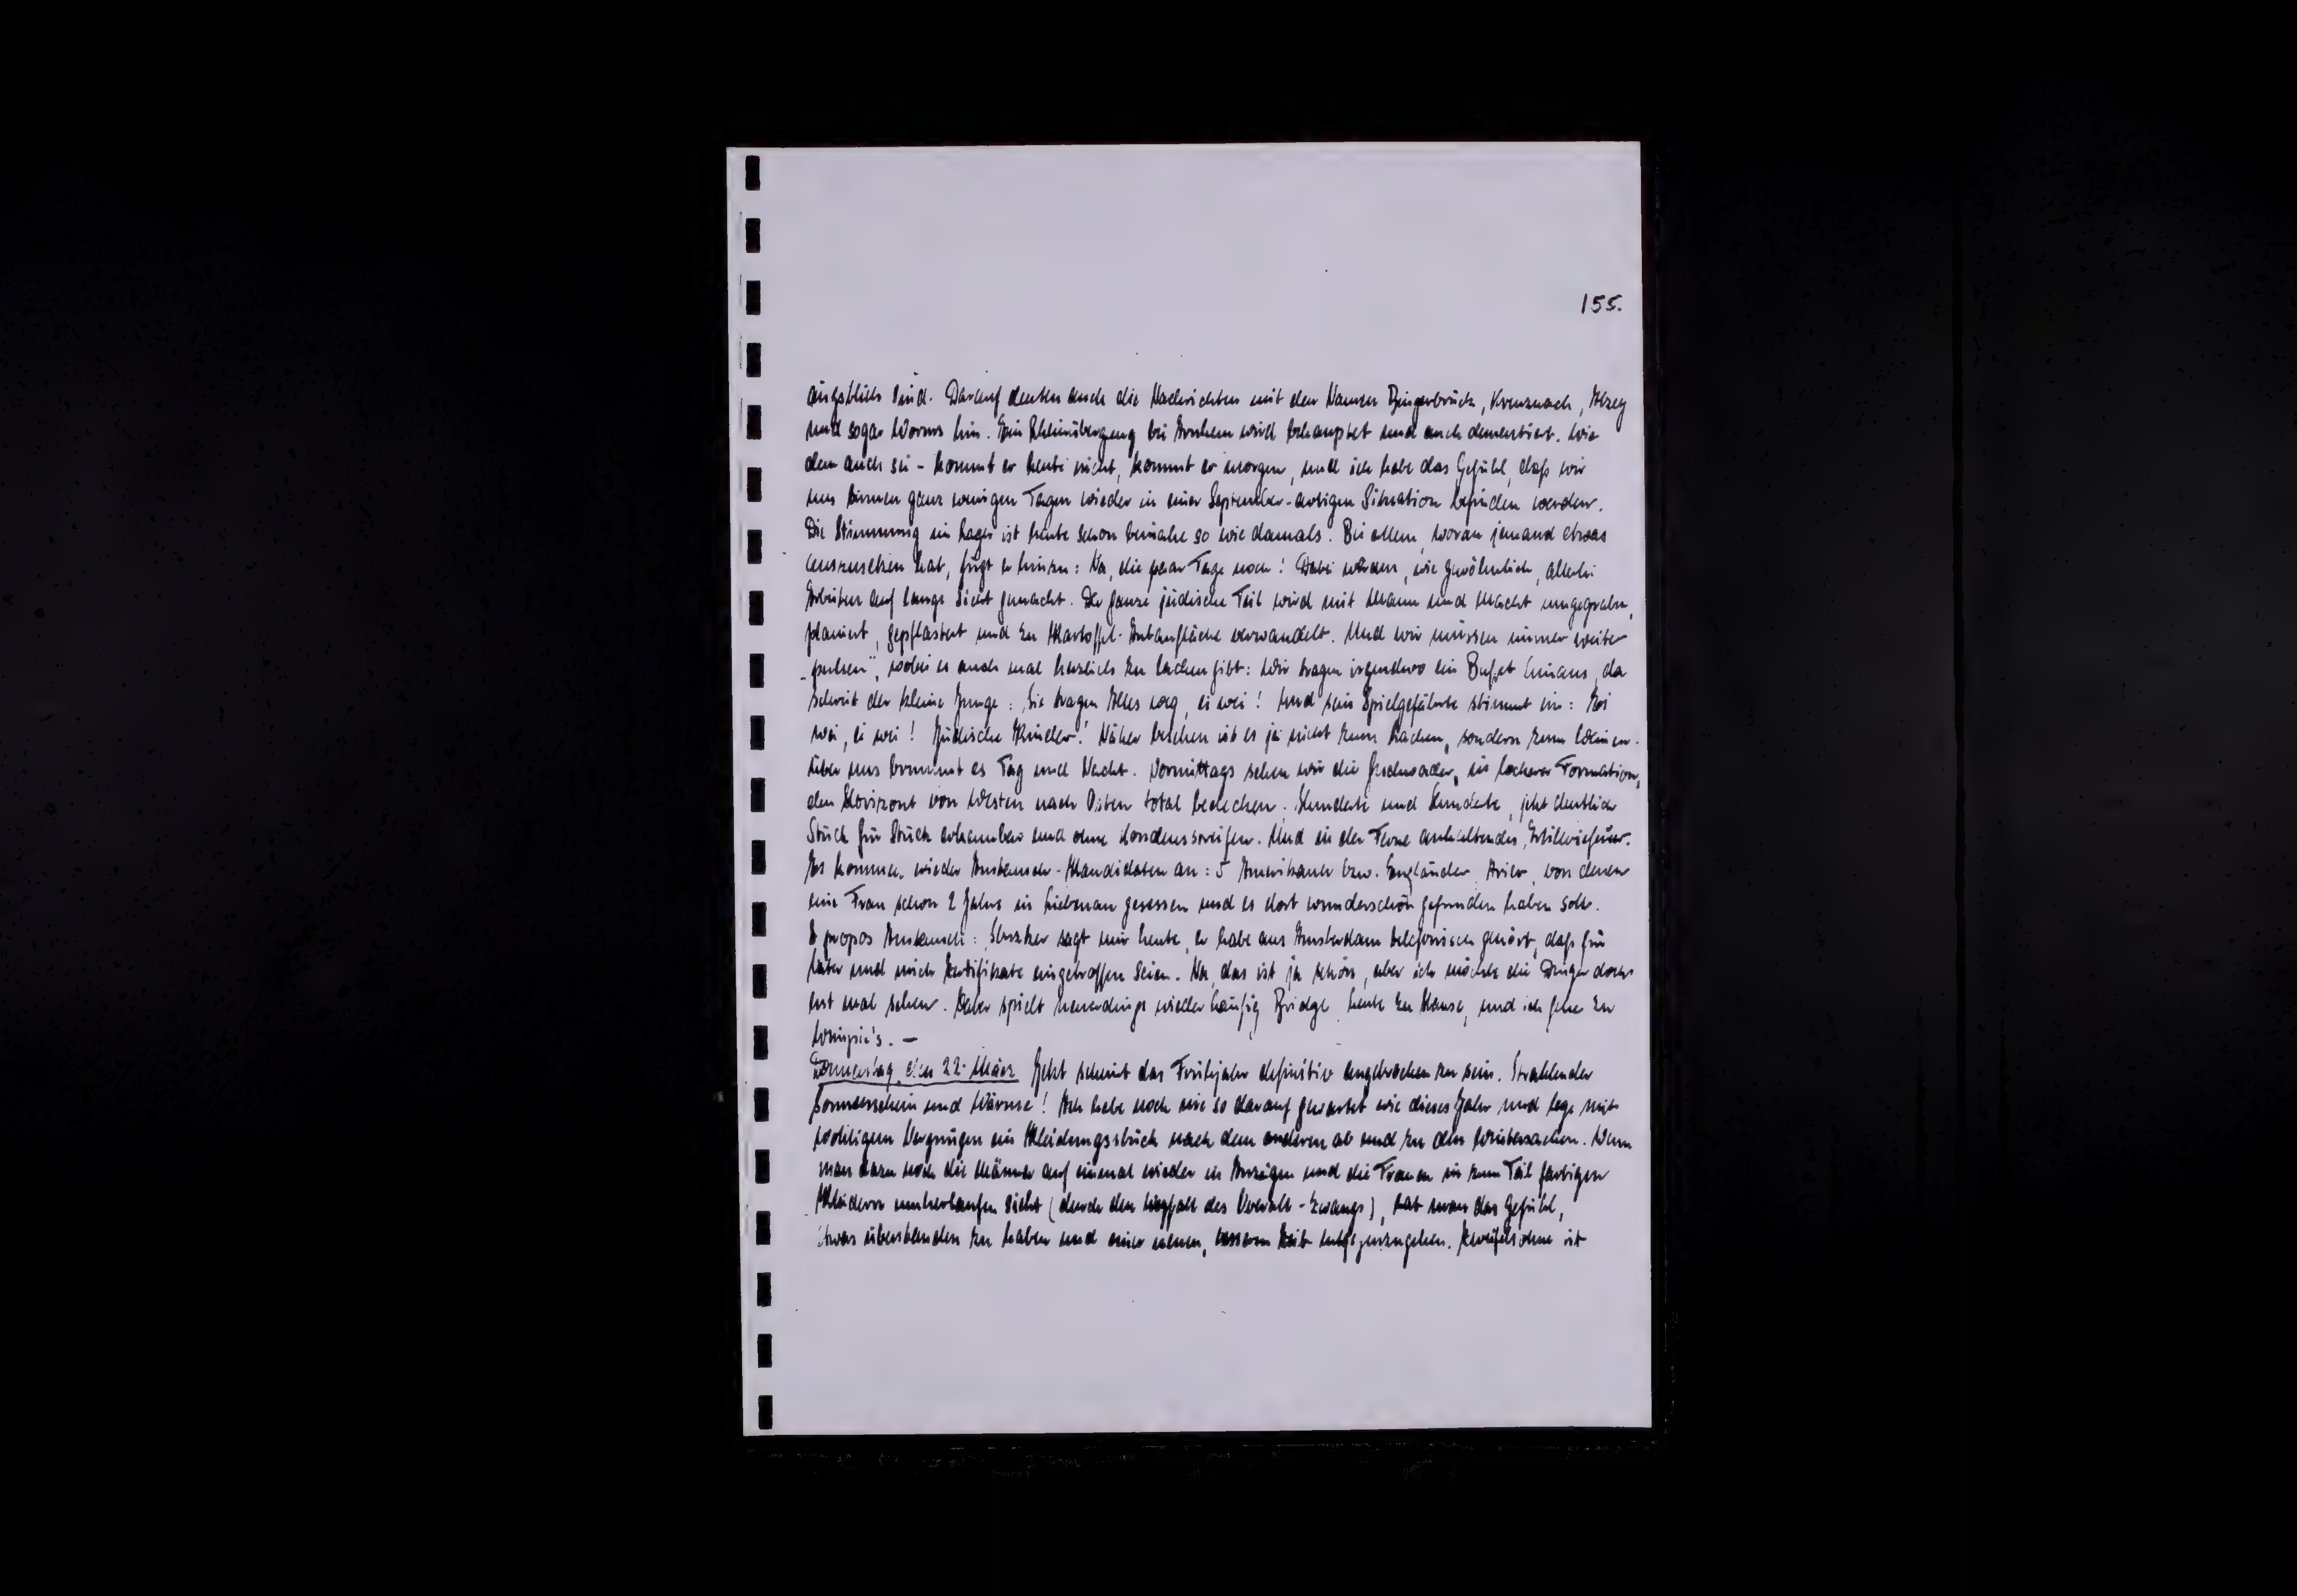 155.
ängstlich sind. Darauf deuten auch die Nachrichten mit den Namen Bingerbrück, Kreuznach, Alzey
und sogar Worms hin. Ein Rheinübergang bei Arnhem wird behauptet und auch dementiert. Wie
dem auch sei - kommt er heute nicht, kommt er morgen, und ich habe das Gefühl, daß wir
uns binnen ganz wenigen Tagen wieder in einer September-artigen Situation befinden werden.
Die Stimmung im Lager ist heute schon beinahe so wie damals. Bei allem, woran jemand etwas
auszusetzen hat, fügt er hinzu: Na, die paar Tage noch! Dabei werden, wie gewöhnlich, allerlei
Arbeiten auf lange Sicht gemacht. Der ganze jüdische Teil wird mit Mann und Macht umgegraben,
planiert, gepflastert und zu Kartoffel-Anbaufläche verwandelt. Und wir müssen immer weiter
„pulsen", wobei es auch mal herzlich zu lachen gibt: Wir tragen irgendwo ein Buffet hinaus, da
schreit der kleine Junge: Sie tragen Alles weg, ei wei! Und sein Spielgefährte stimmt ein: Ei
wei, ei wei! Jüdische Kinder! Näher besehen ist es ja nicht zum Lachen, sondern zum Weinen.
Über uns brummt es Tag und Nacht. Vormittags sehen wir die Geschwader, in lockerer Formation,
den Horizont von Westen nach Osten total bedecken. Hunderte und Hunderte, jetzt deutlich
Stück für Stück erkennbar und ohne Kondensstreifen. Und in der Ferne anhaltendes Artilleriefeuer.
Es kommen wieder Austausch-Kandidaten an: 5 Amerikaner bzw. Engländer, Arier, von denen
eine Frau schon 2 Jahre in Liebenau gesessen und es dort wunderschön gefunden haben soll.
A propos Austausch: sagt mir heute, er habe aus Amsterdam telefonisch gehört, daß für
und mich Zertifikate eingetroffen seien. Na, das ist ja schön, aber ich möchte die Dinger doch
erst mal sehen. spielt neuerdings wieder häufig Bridge, heute zu Hause, und ich gehe zu
–
Donnerstag, den 22. März Jetzt scheint das Frühjahr definitiv angebrochen zu sein. Strahlender
Sonnenschein und Wärme! Ich habe noch nie so darauf gewartet wie dieses Jahr und lege mit
wohligem Vergnügen ein Kleidungsstück nach dem anderen ab und zu den Wintersachen. Wenn
man dazu noch die Männer auf einmal wieder in Anzügen und die Frauen in zum Teil farbigen
Kleidern umherlaufen sieht (durch den Wegfall des Overall-Zwangs), hat man das Gefühl,
etwas überstanden zu haben und einer neuen, besseren Zeit entgegenzugehen. Zweifelsohne ist